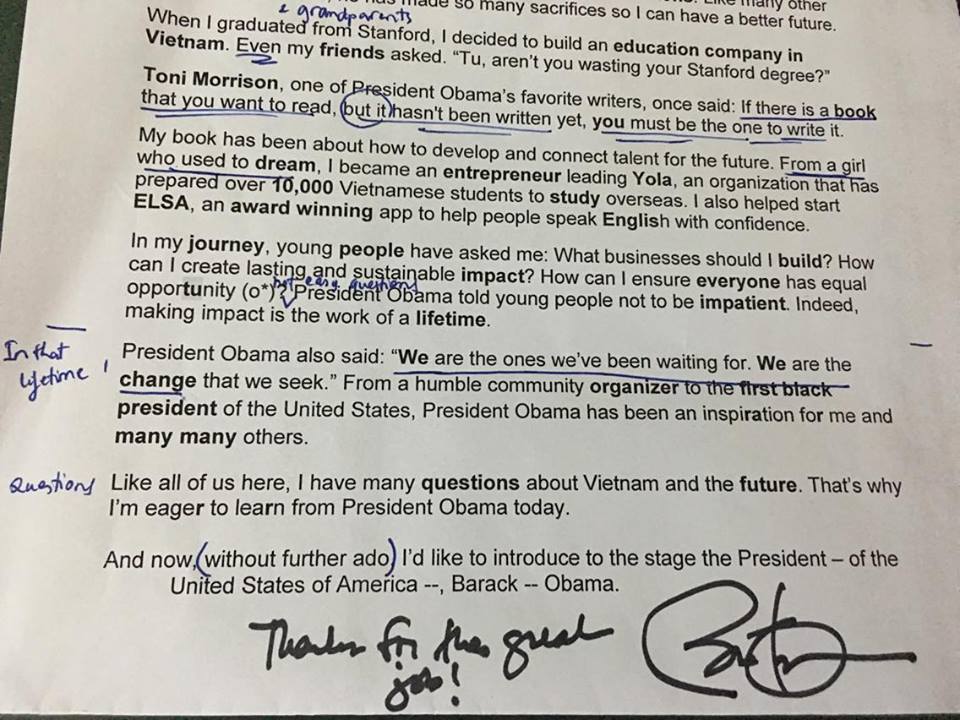 has made so many sacrifices so I can have a better future.
& grandparents
When I graduated from Stanford, I decided to build an education company in
Vietnam. Even my friends asked. “Tu, aren’t you wasting your Stanford degree?”
Toni Morrison, one of President Obama’s favorite writers, once said: If there is a book
that you want to read, but it hasn't been written yet, you must be the one to write it.
My book has been about how to develop and connect talent for the future. From a girl
who used to dream, I became an entrepreneur leading Yola, an organization that has
prepared over 10,000 Vietnamese students to study overseas. I also helped start
ELSA, an award winning app to help people speak English with confidence.
In my journey, young people have asked me: What businesses should I build? How
can I create lasting and sustainable impact? How can I ensure everyone has equal
not easy questions
opportunity (o*)? President Obama told young people not to be impatient. Indeed,
making impact is the work of a lifetime.
In that
lifetime,
President Obama also said: “We are the ones we’ve been waiting for. We are the
change that we seek.” From a humble community organizer to the first black
president of the United States, President Obama has been an inspiration for me and
many many others.
Questions
Like all of us here, I have many questions about Vietnam and the future. That’s why
I’m eager to learn from President Obama today.
And now, (without further ado) I’d like to introduce to the stage the President – of the
United States of America --, Barack -- Obama.
Thanks for the great
job!